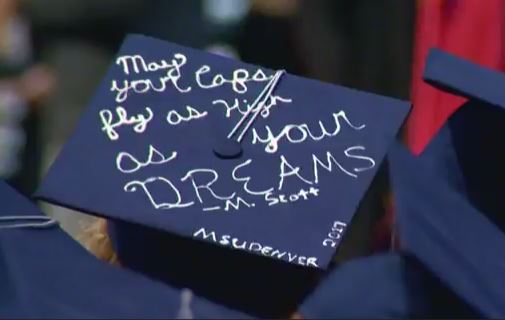 May
your Caps
fly as High
as your
DREAMS
-M. Scott
MSUDENVER 2017